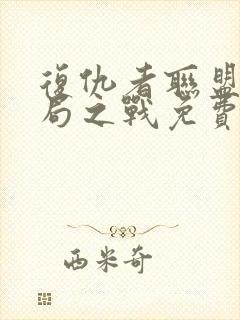 復仇者聯盟
局之戰免費
西米奇